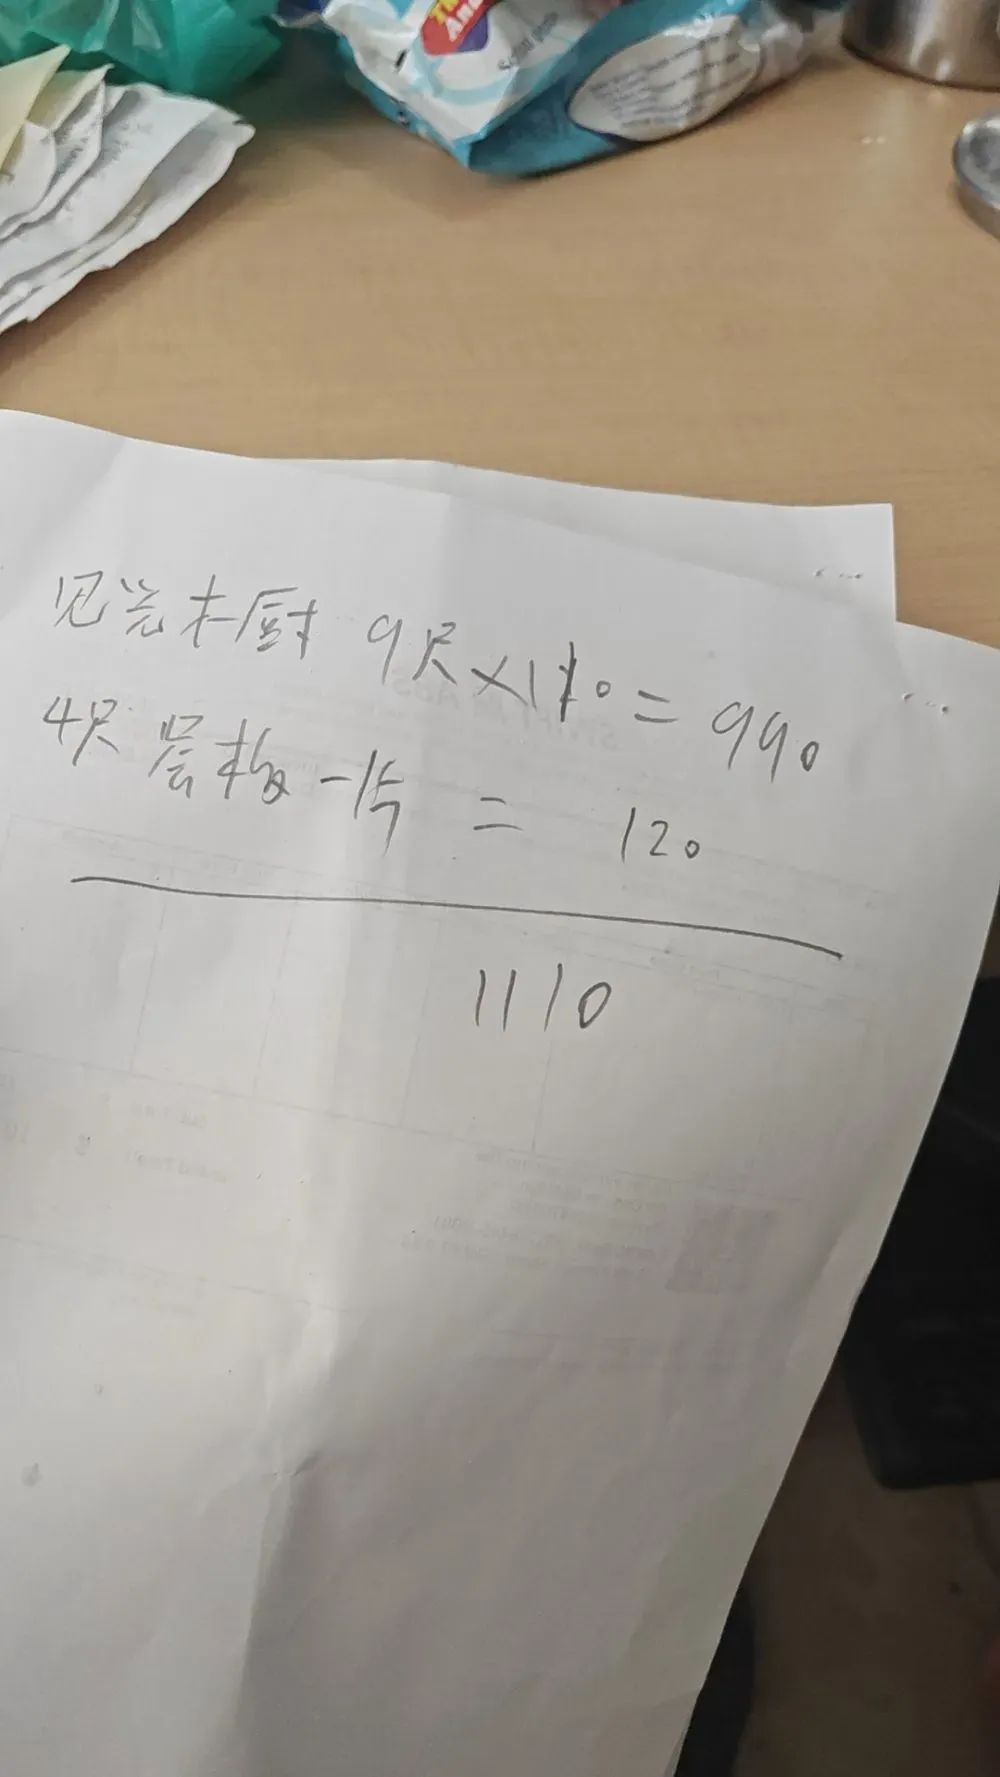 见光木厨 9尺×110=990
4尺层板一片 = 120
1110